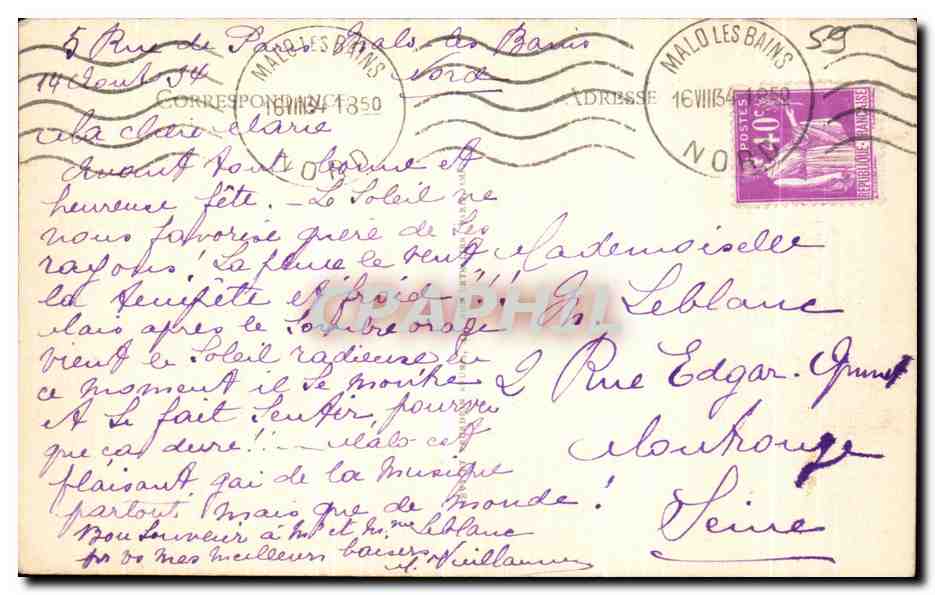 5 Rue de Paris Malo-les Bains
Nord
14 Aout 34
CORRESPONDANCE
ADRESSE
MALO LES BAINS
16 VIII 34 18 50
NORD
MALO LES BAINS
16 VIII 34 18 50
NORD
59
POSTES
40 c
REPUBLIQUE FRANCAISE
Ma chère Marie
Avant tout bonne et
heureuse fête. - Le Soleil ne
nous favorise guère de Ses
rayons! La pluie le vent
la tempête et froid!!!
Mais après le Sombre orage
vient le Soleil radieuse En
ce moment il Se montre
et Se fait Sentir, pourvu
que ça dure!! - Malo est
plaisant, gai de la musique
partout, mais que de monde!
Bon Souvenir à Mr et Mme Leblanc
pr vs mes meilleurs baisers
Mademoiselle
M. Leblanc
2 Rue Edgar-Quinet
Montrouge
Seine
CPAPHIL